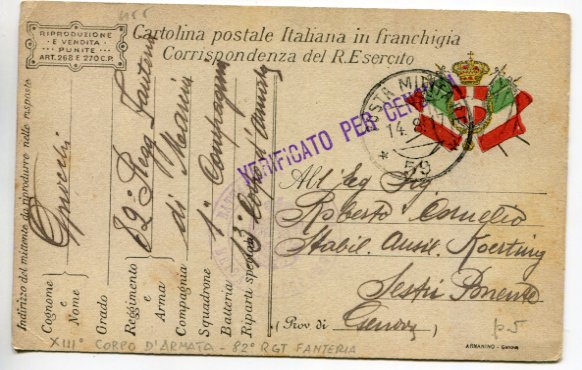 155
RIPRODUZIONE
E VENDITA
PUNITE
ART. 268 E 270 C.P.
Cartolina postale Italiana in franchigia
Corrispondenza del R. Esercito
POSTA MILITARE
14.9.17
59
VERIFICATO PER CENSURA
Indirizzo del mittente da riprodurre nelle risposte
Cognome
e
Nome
Grado
Reggimento 82º Reg Fanteria
e
Arma
Compagnia di Marcia
Squadrone 1ª Compagnia
Batteria
Riparti speciali 13º Corpo d'Armata
All' Sig
Roberto Cornelio
Stabil. Ausil. Koerting
Sestri Ponente
(Prov. di Genova)
p. 5
XIIIº CORPO D'ARMATA - 82º RGT FANTERIA
ARMANINO - Genova